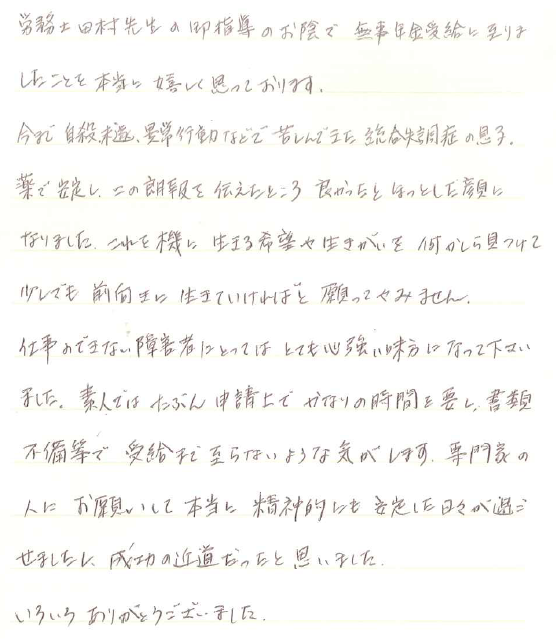 労務士田村先生の御指導のお陰で無事年金受給に至りま
したことを本当に嬉しく思っております。
今まで自殺未遂、異常行動などで苦しんできた統合失調症の息子。
薬で安定し、この朗報を伝えたところ良かったとほっとした顔に
なりました。これを機に生きる希望や生きがいを何かしら見つけて
少しでも前向きに生きていければと願ってやみません。
仕事のできない障害者にとってはとても心強い味方になって下さい
ました。素人ではたぶん申請上でかなりの時間を要し、書類
不備等で受給まで至らないような気がします。専門家の
人にお願いして本当に精神的にも安定した日々が過ご
せましたし、成功の近道だったと思いました。
いろいろありがとうございました。